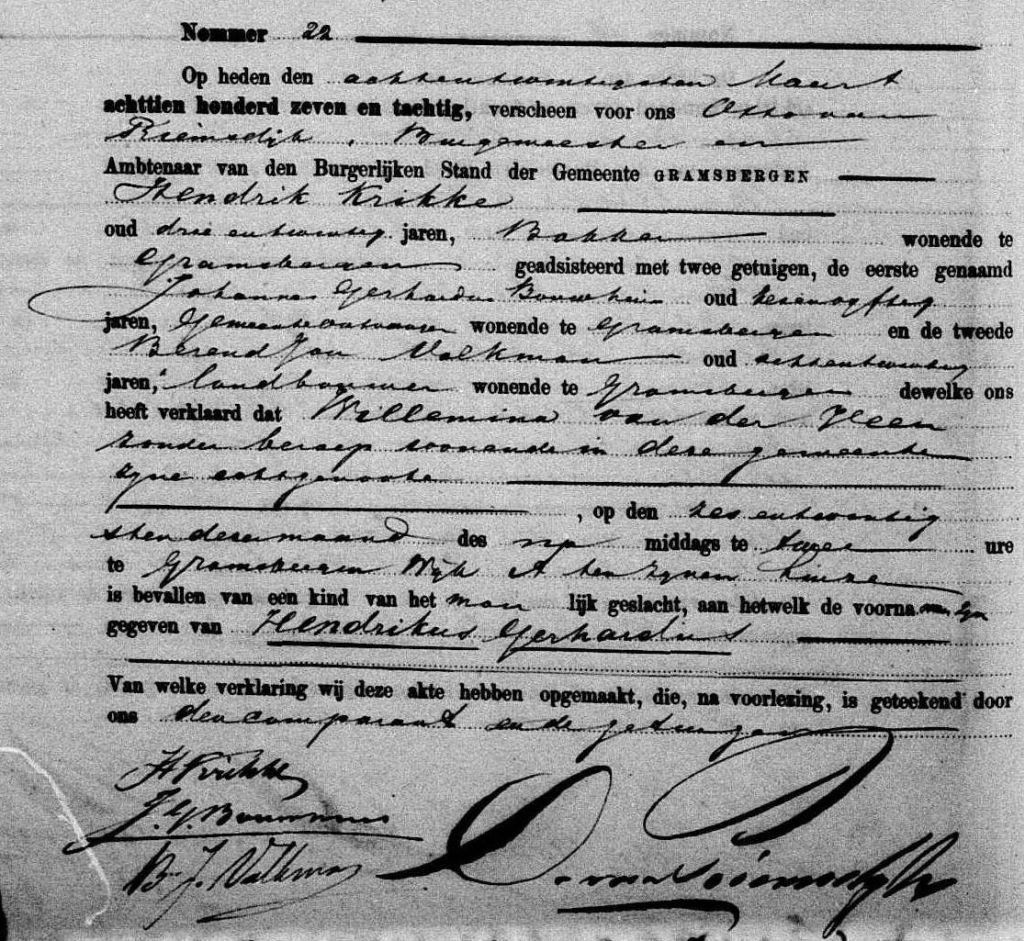 Nommer 22
Op heden den achtentwintigsten Maart
achttien honderd zeven en tachtig, verscheen voor ons Otto van
Riemsdijk, Burgemeester en
Ambtenaar van den Burgerlijken Stand der Gemeente GRAMSBERGEN
Hendrik Krikke
oud drie entwintig jaren, Bakker wonende te
Gramsbergen geadsisteerd met twee getuigen, de eerste genaamd
Johannes Gerhardus oud zesenvyftig
jaren, Gemeenteontvanger wonende te Gramsbergen en de tweede
Berend Jan Valkman oud achtentwintig
jaren, landbouwer wonende te Gramsbergen dewelke ons
heeft verklaard dat Willemina van der Veen
zonder beroep wonende in deze gemeente
zyne echtgenoote
, op den zes entwintig
sten dezer maand des na middags te twee ure
te Gramsbergen Wyk A ten zynen huize
is bevallen van een kind van het man lijk geslacht, aan hetwelk de voorna men zyn
gegeven van Hendrikus Gerhardus
Van welke verklaring wij deze akte hebben opgemaakt, die, na voorlezing, is geteekend door
ons den comparant en de getuigen
H Krikke
J. G. 
B. J. Valkman
O. van Riemsdyk